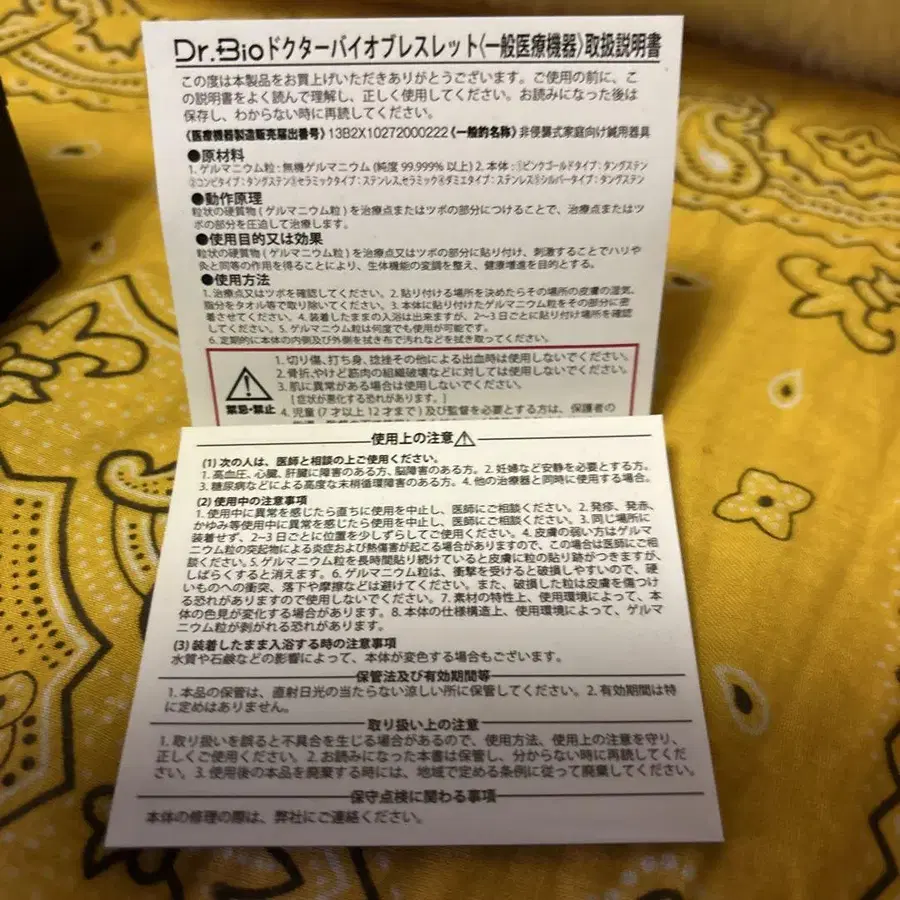 Dr.Bioドクターバイオブレスレット〈一般医療機器〉取扱説明書
この度は本製品をお買上げいただきありがとうございます。ご使用の前に、こ
の説明書をよく読んで理解し、正しく使用してください。お読みになった後は
保存し、わからない時に再読してください。
《医療機器製造販売届出番号》13B2X10272000222《一般的名称》非侵襲式家庭向け鍼用器具
●原材料
1. ゲルマニウム粒：無機ゲルマニウム (純度 99.999% 以上) 2. 本体：①ピンクゴールドタイプ：タングステン
②コンビタイプ：タングステン③セラミックタイプ：ステンレス,セラミック④ダミエタイプ：ステンレス⑤シルバータイプ：タングステン
●動作原理
粒状の硬質物 (ゲルマニウム粒) を治療点またはツボの部分につけることで、治療点またはツ
ボの部分を圧迫して治療します。
●使用目的又は効果
粒状の硬質物 (ゲルマニウム粒) を治療点又はツボの部分に貼り付け、刺激することでハリや
灸と同等の作用を得ることにより、生体機能の変調を整え、健康増進を目的とする。
●使用方法
1. 治療点又はツボを確認してください。2. 貼り付ける場所を決めたらその場所の皮膚の湿気、
脂分をタオル等で取り除いてください。3. 本体に貼り付けたゲルマニウム粒をその部分に密
着させてください。4. 装着したままの入浴は出来ますが、2〜3 日ごとに貼り付け場所を確認
してください。5. ゲルマニウム粒は何度でも使用が可能です。
6. 定期的に本体の内側及び外側を拭き布で汚れなどを拭き取ってください。
1. 切り傷、打ち身、捻挫その他による出血時は使用しないでください。
2. 骨折、やけど筋肉の組織破壊などに対しては使用しないでください。
3. 肌に異常がある場合は使用しないでください。
[症状が悪化する恐れがあります。]
禁忌・禁止
4. 児童 (7 才以上 12 才まで) 及び監督を必要とする方は、保護者の
使用上の注意
(1) 次の人は、医師と相談の上ご使用ください。
1. 高血圧、心臓、肝臓に障害のある方、脳障害のある方。2. 妊婦など安静を必要とする方。
3. 糖尿病などによる高度な末梢循環障害のある方。4. 他の治療器と同時に使用する場合。
(2) 使用中の注意事項
1. 使用中に異常を感じたら直ちに使用を中止し、医師にご相談ください。2. 発疹、発赤、
かゆみ等使用中に異常を感じたら使用を中止し、医師にご相談ください。3. 同じ場所に
装着せず、2〜3 日ごとに位置を少しずらしてご使用ください。4. 皮膚の弱い方はゲルマ
ニウム粒の突起物による炎症および熱傷害が起こる場合がありますので、この場合は医師にご相
談ください。5. ゲルマニウム粒を長時間貼り続けていると皮膚に粒の貼り跡がつきますが、
しばらくすると消えます。6. ゲルマニウム粒は、衝撃を受けると破損しやすいので、硬
いものへの衝突、落下や摩擦などは避けてください。また、破損した粒は皮膚を傷つけ
る恐れがありますので使用しないでください。7. 素材の特性上、使用環境によって、本
体の色見が変化する場合があります。8. 本体の仕様構造上、使用環境によって、ゲルマ
ニウム粒が剥がれる恐れがあります。
(3) 装着したまま入浴する時の注意事項
水質や石鹸などの影響によって、本体が変色する場合もございます。
保管法及び有効期間等
1. 本品の保管は、直射日光の当たらない涼しい所に保管してください。2. 有効期間は特
に定めはありません。
取り扱い上の注意
1. 取り扱いを誤ると不具合を生じる場合があるので、使用方法、使用上の注意を守り、
正しくご使用ください。2. お読みになった本書は保管し、分からない時に再読してくだ
さい。3. 使用後の本品を廃棄する時には、地域で定める条例に従って廃棄してください。
保守点検に関わる事項
本体の修理の際は、弊社にご連絡ください。